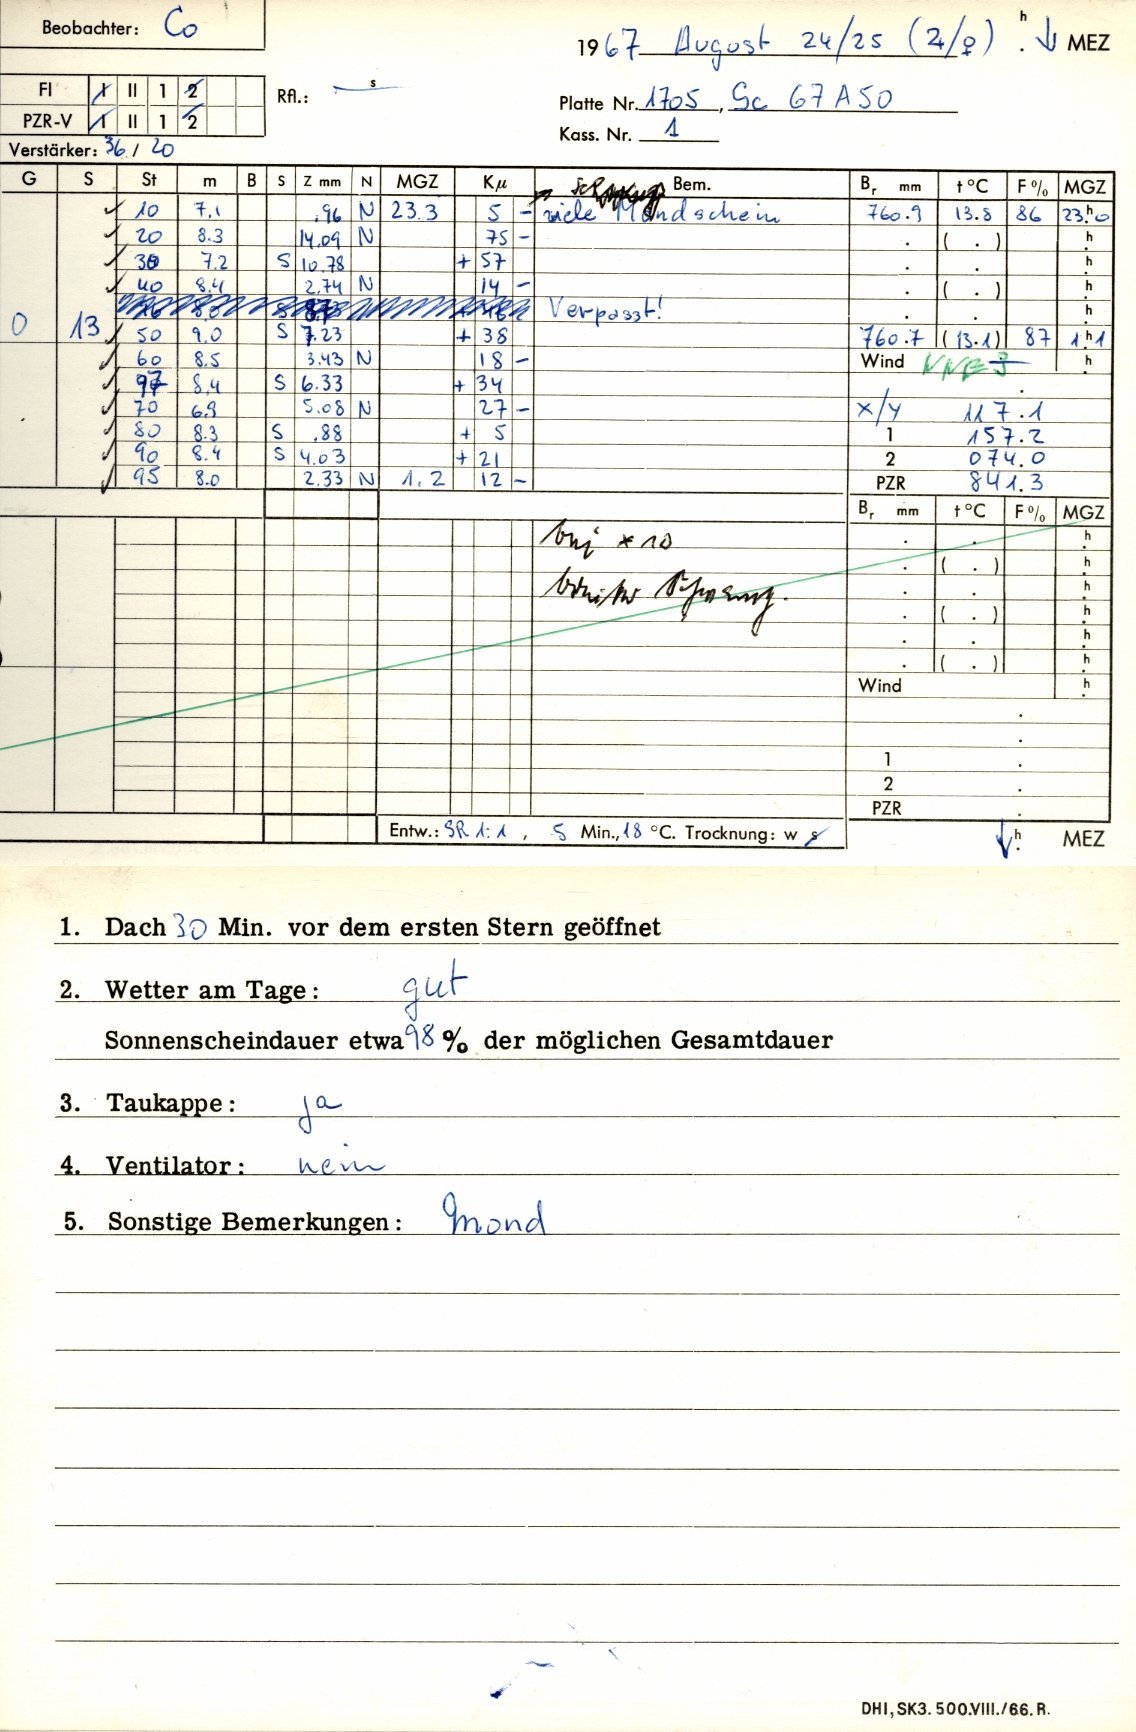 Beobachter: Co
1967 August 24/25 (♃/♀) . h ↓ MEZ
FI I II 1 2
PZR-V I II 1 2
Rfl.: — s
Platte Nr. 1705, Sc 67A50
Kass. Nr. 1
Verstärker: 36 / 20
G S St m B S Z mm N MGZ Kμ Bem. Br mm t °C F % MGZ
✓ 10 7.1 .96 N 23.3 5 – viele Mondschein 760.9 13.8 86 23.h0
✓ 20 8.3 14.09 N 75 – . ( . ) h
✓ 30 7.2 S 10.78 + 57 . . h
✓ 40 8.4 2.74 N 14 – . ( . ) h
Verpasst! . . h
0 13 ✓ 50 9.0 S 7.23 + 38 760.7 (13.1) 87 1.h1
✓ 60 8.5 3.43 N 18 – Wind h
✓ 97 8.4 S 6.33 + 34
✓ 70 6.9 5.08 N 27 – x/y 117.1
✓ 80 8.3 S .88 + 5 1 157.2
✓ 90 8.4 S 4.03 + 21 2 074.0
✓ 95 8.0 2.33 N 1.2 12 – PZR 841.3
Br mm t °C F % MGZ
bei * 10
. . h
. ( . ) h
. . h
. ( . ) h
. . h
. ( . ) h
Wind h
.
.
1 .
2 .
PZR .
Entw.: SR 1:1 , 5 Min., 18 °C. Trocknung: w s
↓ h. MEZ
1. Dach 30 Min. vor dem ersten Stern geöffnet
2. Wetter am Tage: gut
Sonnenscheindauer etwa 98 % der möglichen Gesamtdauer
3. Taukappe: ja
4. Ventilator: nein
5. Sonstige Bemerkungen: Mond
DHI, SK3. 500.VIII./66. R.